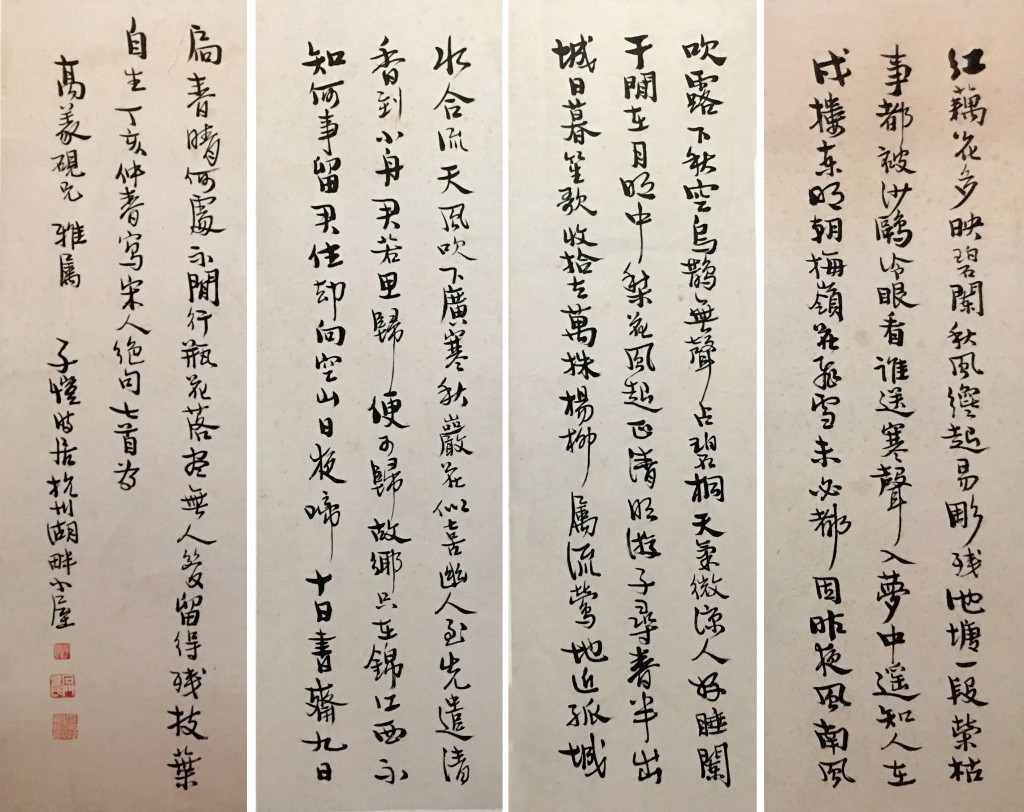 红藕花多映碧闌秋風纔起易彫残池塘一段榮枯
事都被沙鷗冷眼看誰送寒聲入夢中遥知人在
戍樓东明朝梅嶺花飛雪未必都因昨夜風南風
吹露下秋空烏鵲無聲占碧梧天氣微涼人好睡闌
干閒在月明中棃花風起正清明游子尋春半出
城日暮笙歌收拾去萬株楊柳屬流莺地近孤城
水合流天風吹下廣寒秋巖花似喜幽人至先遣清
香到小舟君若思歸便可歸故鄉只在錦江西不
知何事留君住却向空山日夜啼十日書齋九日
扃春晴何處不閒行瓶花落盡無人管留得残枝葉
自生丁亥仲春写宋人絶句七首为
高羲硯兄雅屬
子愷時居杭州湖畔小屋